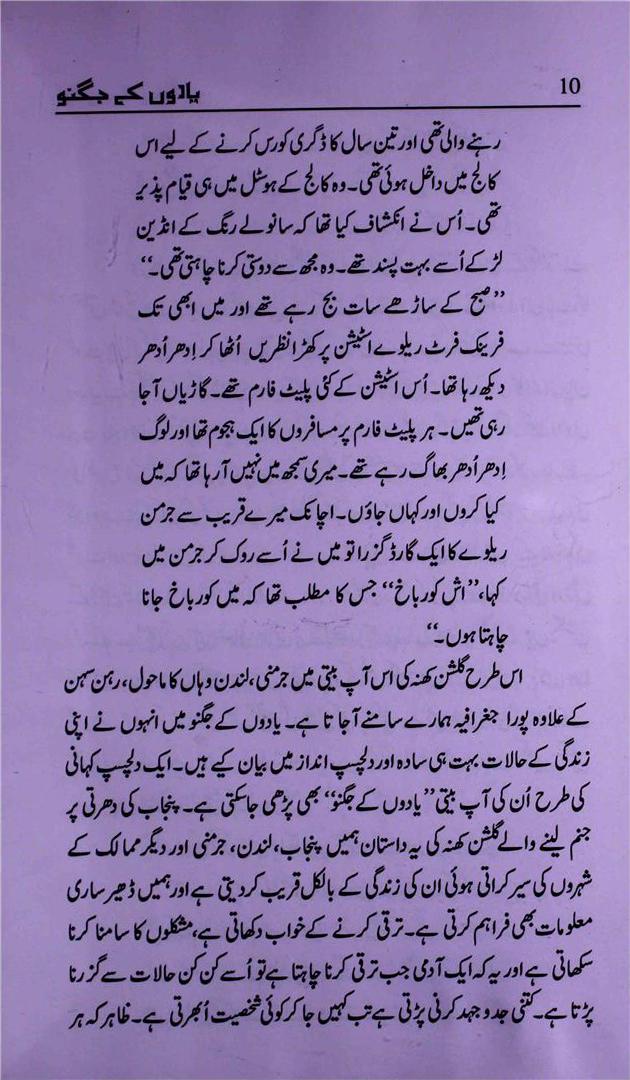 10
یادوں کے جگنو
رہنے والی تھی اور تین سال کا ڈگری کورس کرنے کے لیے اس
کالج میں داخل ہوئی تھی۔ وہ کالج کے ہوسٹل میں ہی قیام پذیر
تھی۔ اُس نے انکشاف کیا تھا کہ سانولے رنگ کے انڈین
لڑکے اُسے بہت پسند تھے۔ وہ مجھ سے دوستی کرنا چاہتی تھی۔‘‘
’’صبح کے ساڑھے سات بج رہے تھے اور میں ابھی تک
فرینک فرٹ ریلوے اسٹیشن پر کھڑا نظریں اُٹھا کر اِدھر اُدھر
دیکھ رہا تھا۔ اُس اسٹیشن کے کئی پلیٹ فارم تھے۔ گاڑیاں آ جا
رہی تھیں۔ ہر پلیٹ فارم پر مسافروں کا ایک ہجوم تھا اور لوگ
اِدھر اُدھر بھاگ رہے تھے۔ میری سمجھ میں نہیں آ رہا تھا کہ میں
کیا کروں اور کہاں جاؤں۔ اچانک میرے قریب سے جرمن
ریلوے کا ایک گارڈ گزرا تو میں نے اُسے روک کر جرمن میں
کہا، ’’اش کور باخ‘‘ جس کا مطلب تھا کہ میں کور باخ جانا
چاہتا ہوں۔‘‘
اس طرح گلشن کھنہ کی اس آپ بیتی میں جرمنی، لندن وہاں کا ماحول، رہن سہن
کے علاوہ پورا جغرافیہ ہمارے سامنے آ جاتا ہے۔ یادوں کے جگنو میں انہوں نے اپنی
زندگی کے حالات بہت ہی سادہ اور دلچسپ انداز میں بیان کیے ہیں۔ ایک دلچسپ کہانی
کی طرح اُن کی آپ بیتی ’’یادوں کے جگنو‘‘ بھی پڑھی جا سکتی ہے۔ پنجاب کی دھرتی پر
جنم لینے والے گلشن کھنہ کی یہ داستان ہمیں پنجاب، لندن، جرمنی اور دیگر ممالک کے
شہروں کی سیر کراتی ہوئی ان کی زندگی کے بالکل قریب کر دیتی ہے اور ہمیں ڈھیر ساری
معلومات بھی فراہم کرتی ہے۔ ترقی کرنے کے خواب دکھاتی ہے، مشکلوں کا سامنا کرنا
سکھاتی ہے اور یہ کہ ایک آدمی جب ترقی کرنا چاہتا ہے تو اُسے کن کن حالات سے گزرنا
پڑتا ہے۔ کتنی جدوجہد کرنی پڑتی ہے تب کہیں جا کر کوئی شخصیت اُبھرتی ہے۔ ظاہر کہ ہر